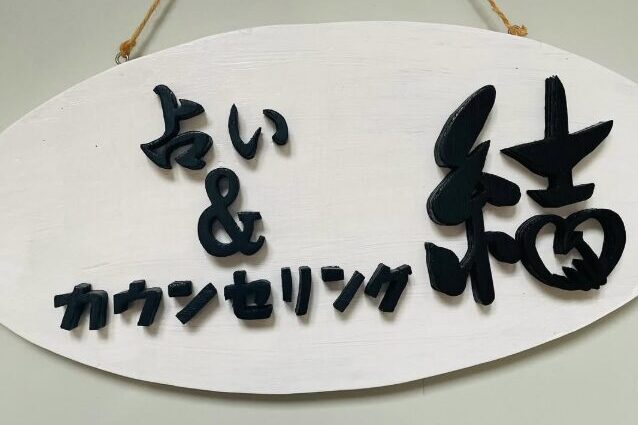 占い
&
カウンセリング
結